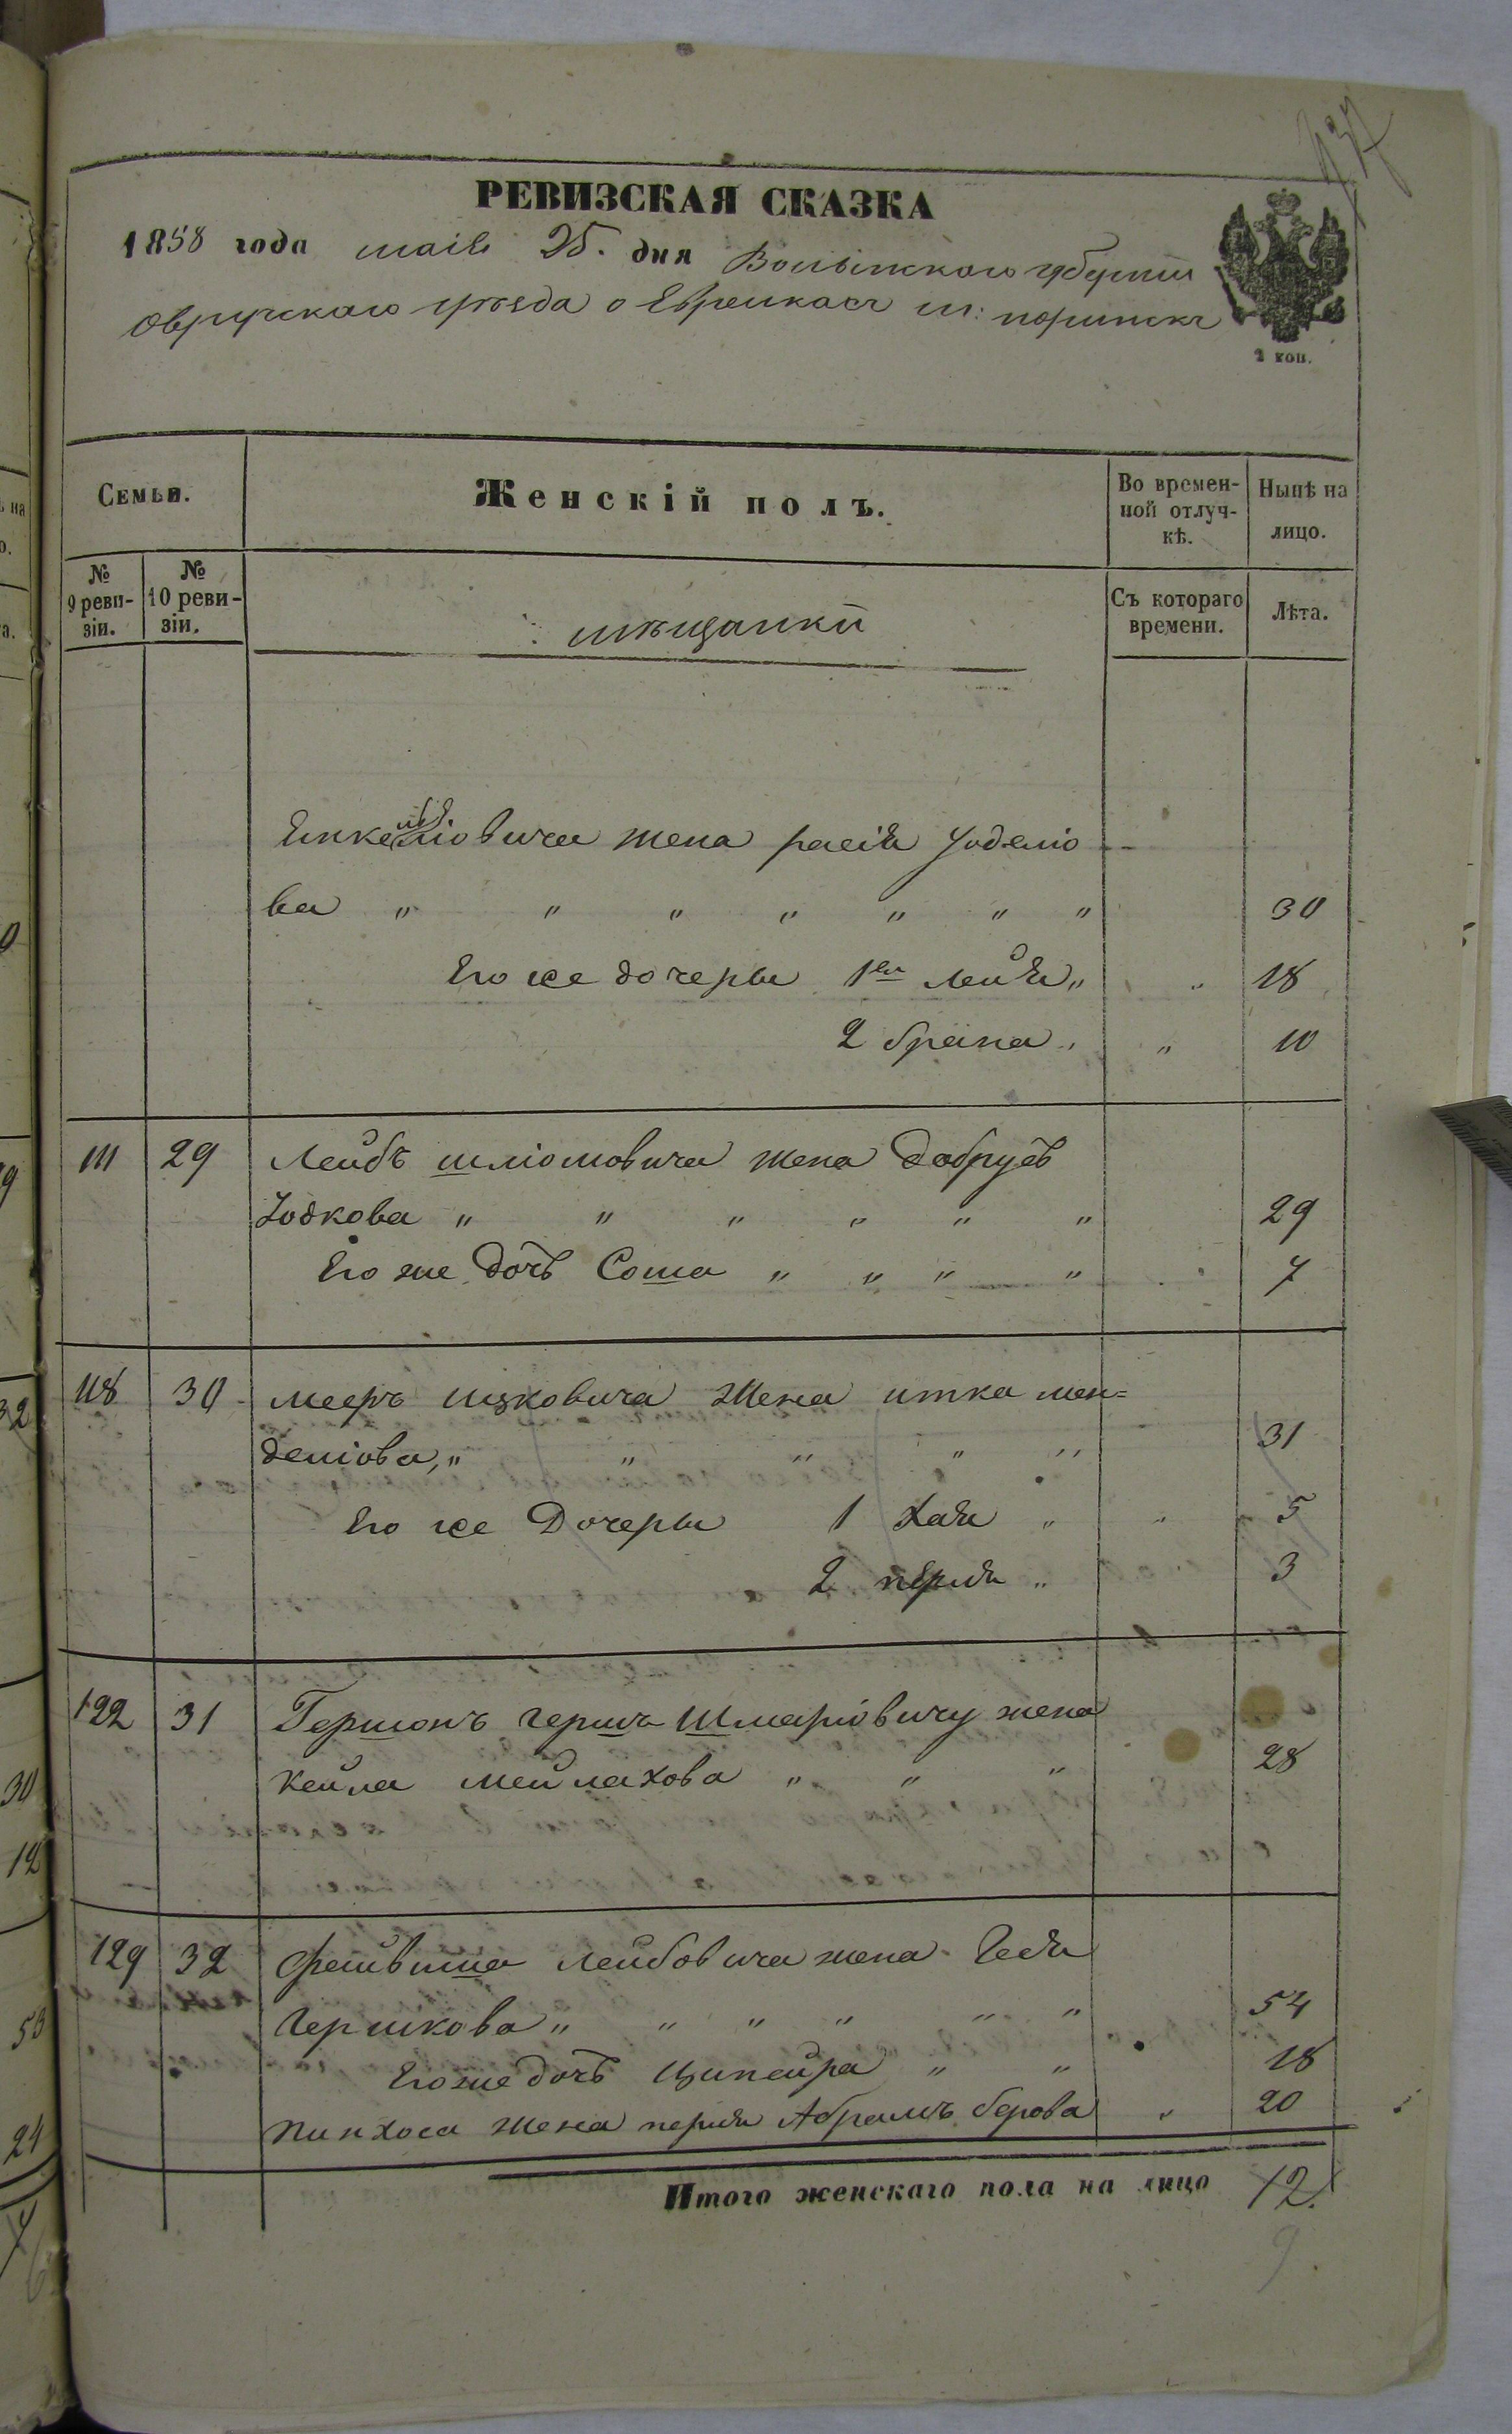 137
РЕВИЗСКАЯ СКАЗКА
1858 года маія 25. дня Волынской губерніи
Овручскаго уѣзда о Еврейкахъ м: норинскъ
2 коп.
Семьи.
Женскій полъ.
Во времен-
ной отлуч-
кѣ.
Нынѣ на
лицо.
№
9 реви-
зіи.
№
10 реви-
зіи.
мѣщанки
Съ котораго
времени.
Лѣта.
жена расія
ва " " " " " " " 30
Его же дочеры 1ая лейя " " 18
2 брáна " " 10
111 29 Лейбъ шліомовича жена Добрусъ
Іозкова " " " " " " 29
Его же дочь Соша " " " " 7
118 30 мееръ ицковича жена итка мен=
деліова, " " " " " 31
Его же Дочеры 1 Хая " " 5
2 перля " 3
122 31 Гершонъ гершъ Шмаріовичу жена
кейла мейлахова " " " 28
129 32 файвиша лейбовича жена Геня
Гершкова " " " " " " 54
Его же дочь ципейра " " 18
пинхоса жена перля Абрамъ берова " 20
Итого женскаго пола на лицо 12.
9.